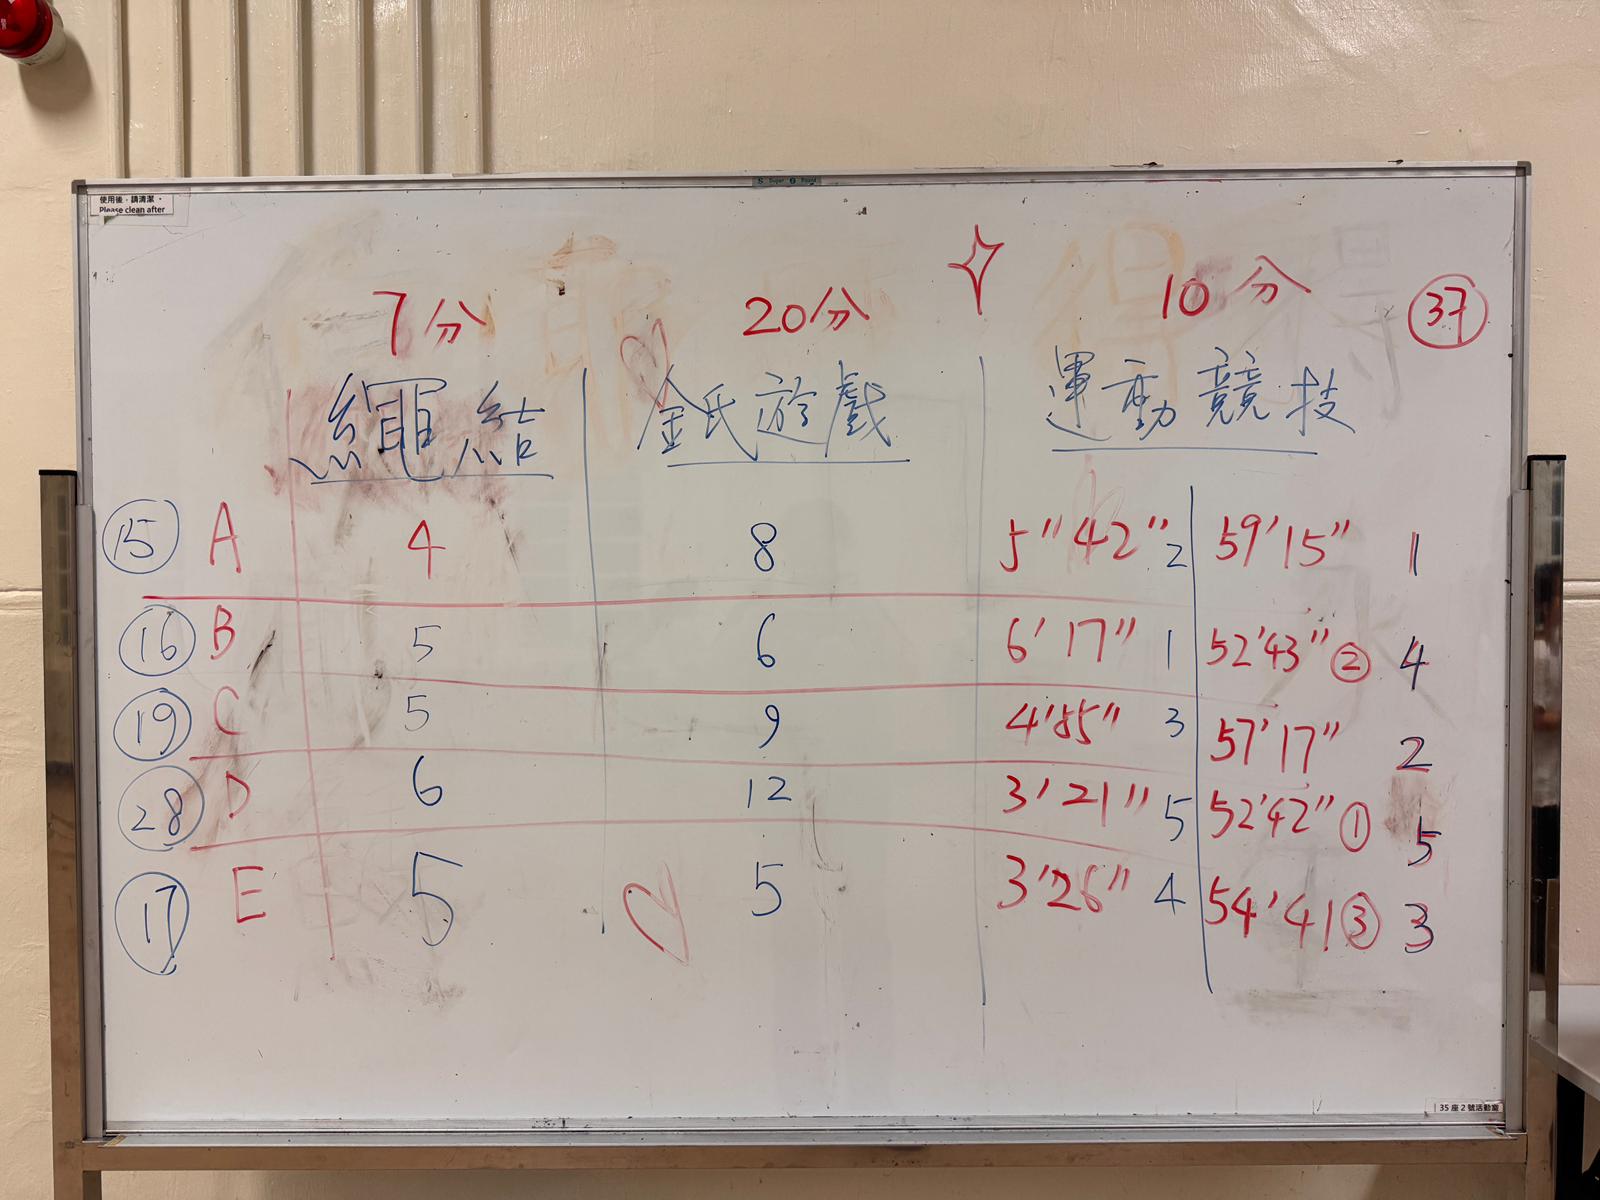 使用後，請清潔。
Please clean after
7分 20分 10分 37
繩結 金氏遊戲 運動競技
15 A 4 8 5"42" 2 59'15" 1
16 B 5 6 6'17" 1 52'43" ② 4
19 C 5 9 4'85" 3 57'17" 2
28 D 6 12 3'21" 5 52'42" ① 5
17 E 5 5 3'26" 4 54'41 ③ 3
35座2號活動室